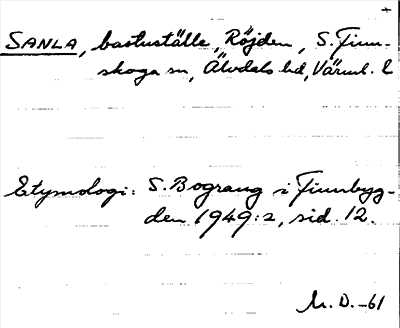 SANLA, bastuställe, Röjden, S. Finn-
skoga sn, Älvdals hd, Värml. l
Etymologi: S. Bograng i Finnbyg-
den 1949:2, sid. 12.
M.D.-61